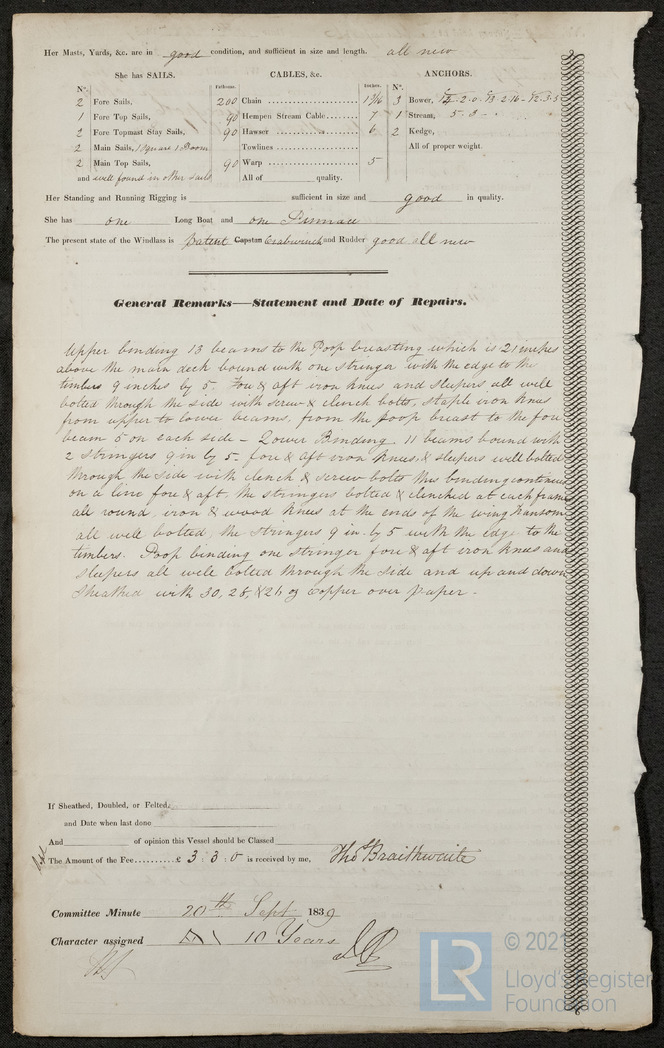 Her Masts, Yards, &c. are in good condition, and sufficient in size and length. all new
She has SAILS. CABLES, &c. ANCHORS.
N°. Fathoms. Inches. N°.
2 Fore Sails, 200 Chain 1 3/16 3 Bower,
1 Fore Top Sails, 90 Hempen Stream Cable 7 1 Stream, 5 - 0 -
2 Fore Topmast Stay Sails, 90 Hawser 6 2 Kedge,
2 Main Sails, 1 Square 1 Boom Towlines All of proper weight.
2 Main Top Sails, 90 Warp 5
and well found in other sails All of quality.
Her Standing and Running Rigging is sufficient in size and good in quality.
She has one Long Boat and one Pinnace
The present state of the Windlass is patent Capstan Crabwinch and Rudder good all new
General Remarks—Statement and Date of Repairs.
Upper binding 13 beams to the Poop breasting which is 21 inches
above the main deck bound with one stringer with the edge to the
timbers 9 inches by 5. Fore & aft iron knees and sleepers all well
bolted through the side with screw & clench bolts, staple iron knees
from upper to lower beams, from the poop breast to the fore
beam 5 on each side – Lower Binding 11 beams bound with
2 stringers 9 in by 5 - fore & aft iron knees, & sleepers well bolted
through the side with clench & screw bolts this binding continues
on a line fore & aft, the stringers bolted & clenched at each frame
all round, iron & wood knees at the ends of the wing transom
all well bolted, the stringers 9 in by 5 with the edge to the
timbers. Poop binding one stringer fore & aft iron knees and
sleepers all well bolted through the side and up and down
Sheathed with 30, 28, & 26 oz copper over paper -
If Sheathed, Doubled, or Felted,
and Date when last done
And of opinion this Vessel should be Classed
The Amount of the Fee £ 3 : 3 : 0 is received by me, Tho Braithwaite
Committee Minute 20th Sept 1839
Character assigned A 10 Years
LR © 202
Lloyd's Register
Foundation